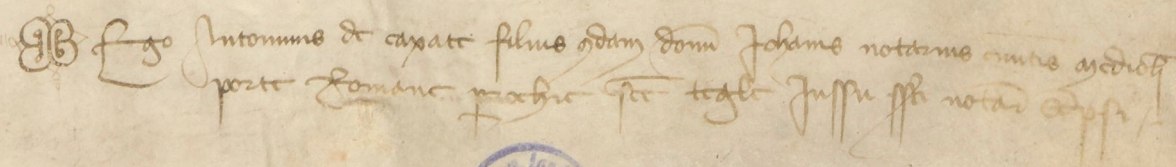 Ego Antonius de caxate filius qdam domi Johanis notarius civitis mediolì
porte Romane parochie sce tegle Jussu ssti notarì scripsi